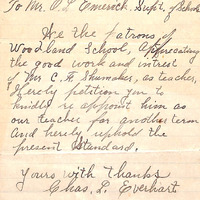 To Mr. O.L. Emerick. Supt. of Schools
We the patrons of
Woodland School, Appreciating
the good work and intrest
of Mr C. F. Shumaker, as teacher,
hereby petition you to
kindly re appoint him as
our teacher for another term
and hereby uphold the
present standard.
Yours with thanks
Chas. L. Everhart